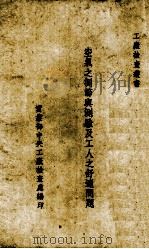 工廠檢查叢書
空氣之調節與測驗及工人之舒適問題
實業部中央工廠檢查處編印